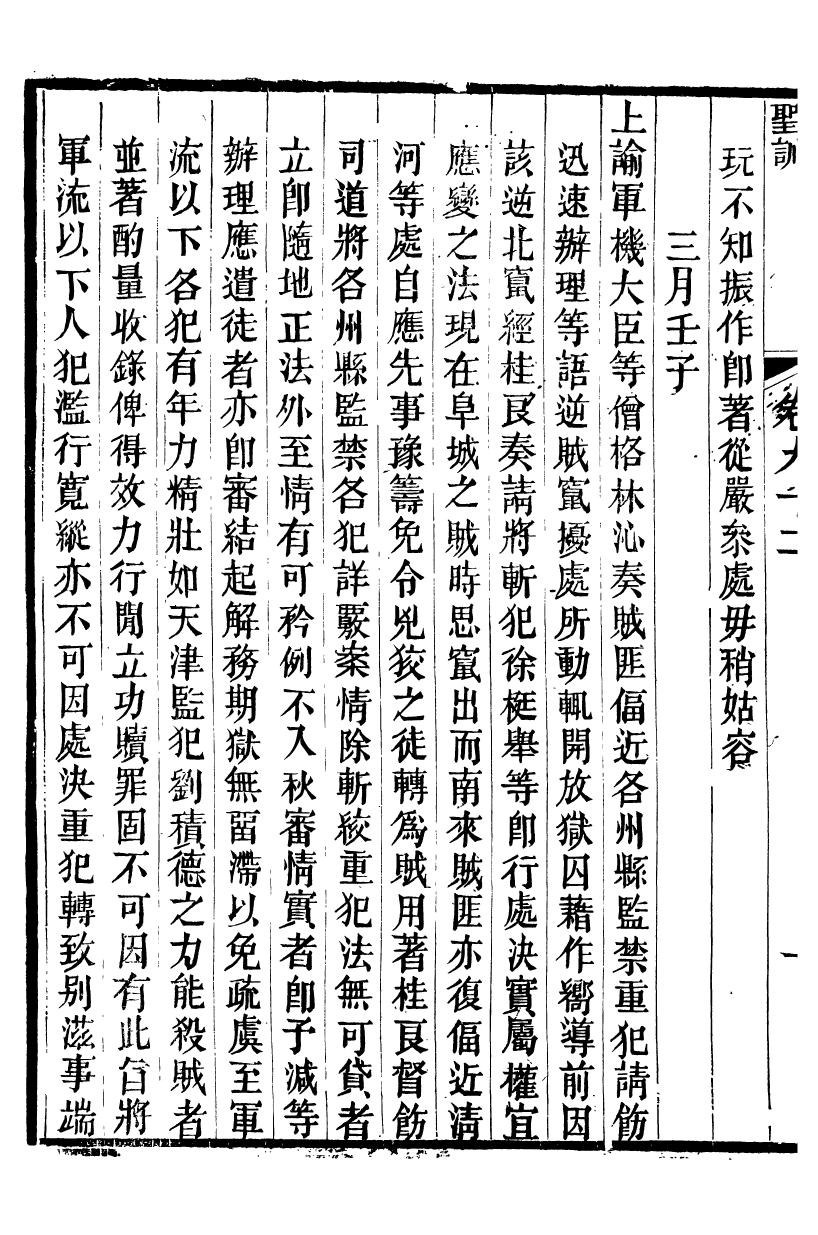 聖訓
卷九十二
一
玩不知振作卽著從嚴叅處毋稍姑容
三月壬子
上諭軍機大臣等僧格林沁奏賊匪偪近各州縣監禁重犯請飭
迅速辦理等語逆賊竄擾處所動輒開放獄囚藉作嚮導前因
該逆北竄經桂良奏請將斬犯徐梃舉等卽行處決實屬權宜
應變之法現在阜城之賊時思竄出而南來賊匪亦復偪近淸
河等處自應先事豫籌免令兇狡之徒轉爲賊用著桂良督飭
司道將各州縣監禁各犯詳覈案情除斬絞重犯法無可貸者
立卽隨地正法外至情有可矜例不入秋審情實者卽予減等
辦理應遣徒者亦卽審結起解務期獄無畱滯以免疏虞至軍
流以下各犯有年力精壯如天津監犯劉積德之力能殺賊者
並著酌量收錄俾得效力行閒立功贖罪固不可因有此旨將
軍流以下人犯濫行寬縱亦不可因處決重犯轉致別滋事端